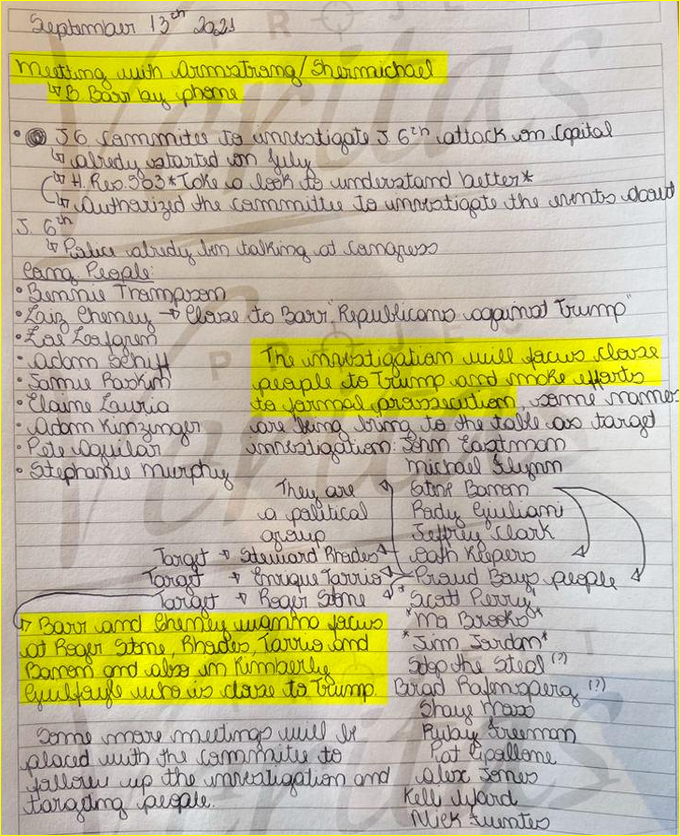 September 13th 2021
Meetting with Armstrong/Shermichael
↳ B Barr by phone
• J6 Committee to investigate J. 6th attack on Capital
↳ alredy started on July
↳ H. Res. 503 *Take a look to understand better*
↳ Authorized the committee to investigate the events about
J. 6th
↳ Police alredy ben talking at Congress
Cong People:
• Bennie Thompson
• Laiz Cheney → Close to Barr "Republicans against Trump"
• Zoe Loofgren
• Adam Schiff
• Jamie Raskin
• Elaine Lauria
• Adam Kinzinger
• Pete Aguilar
• Stephanie Murphy
The investigation will focus close
people to Trump and make efforts
to formal prossecution, some names
are being bring to the table as target
investigation: John Eastman
Michael Flynn
Steve Bannon
Rody Giuliani
Jeffrey Clark
Oath Keepers
Proud Boys people
*Scott Perry*
*Mo Brooks*
*Jim Jordan*
Stop the Steal (?)
Brad Rafensperg (?)
Shaye Moss
Ruby Freeman
Pat Cipollone
Alex Jones
Kelli Ward
Nick Fuentes
They are
a political
group
Target → Steward Rhodes
Target → Enrique Tarrio
Target → Roger Stone
Barr and Cheney wanna focus
at Roger Stone, Rhodes, Tarrio and
Bannon and also in Kimberly
Guilfoyle who is close to Trump.
Some more meetings will be
placed with the committe to
follow up the investigation and
targeting people.
PROJECT
Veritas
PROJECT
Veritas